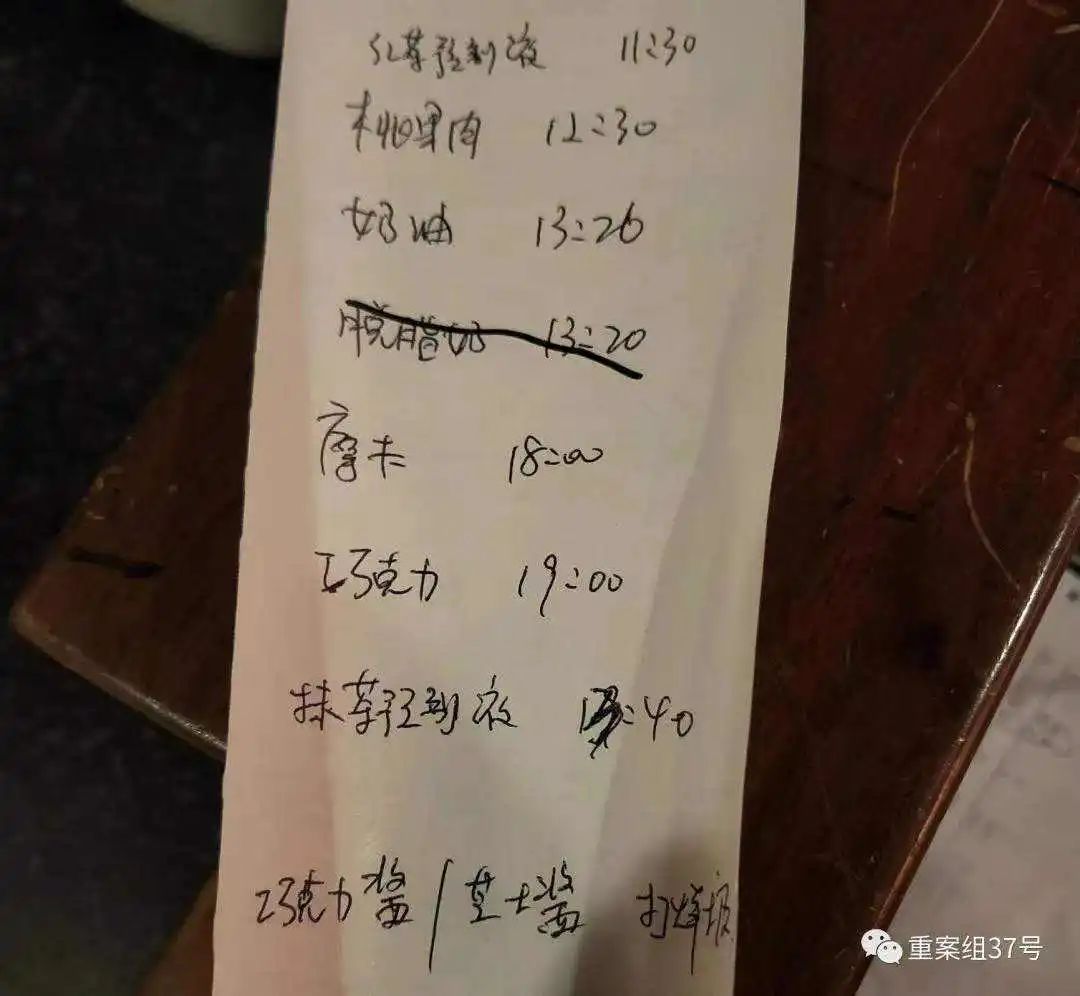 红茶液 11:30
桃果肉 12:30
奶油 13:26
脱脂奶 13:20
摩卡 18:00
巧克力 19:00
抹茶液 :40
巧克力酱 / 芝士酱 打烊报
重案组37号